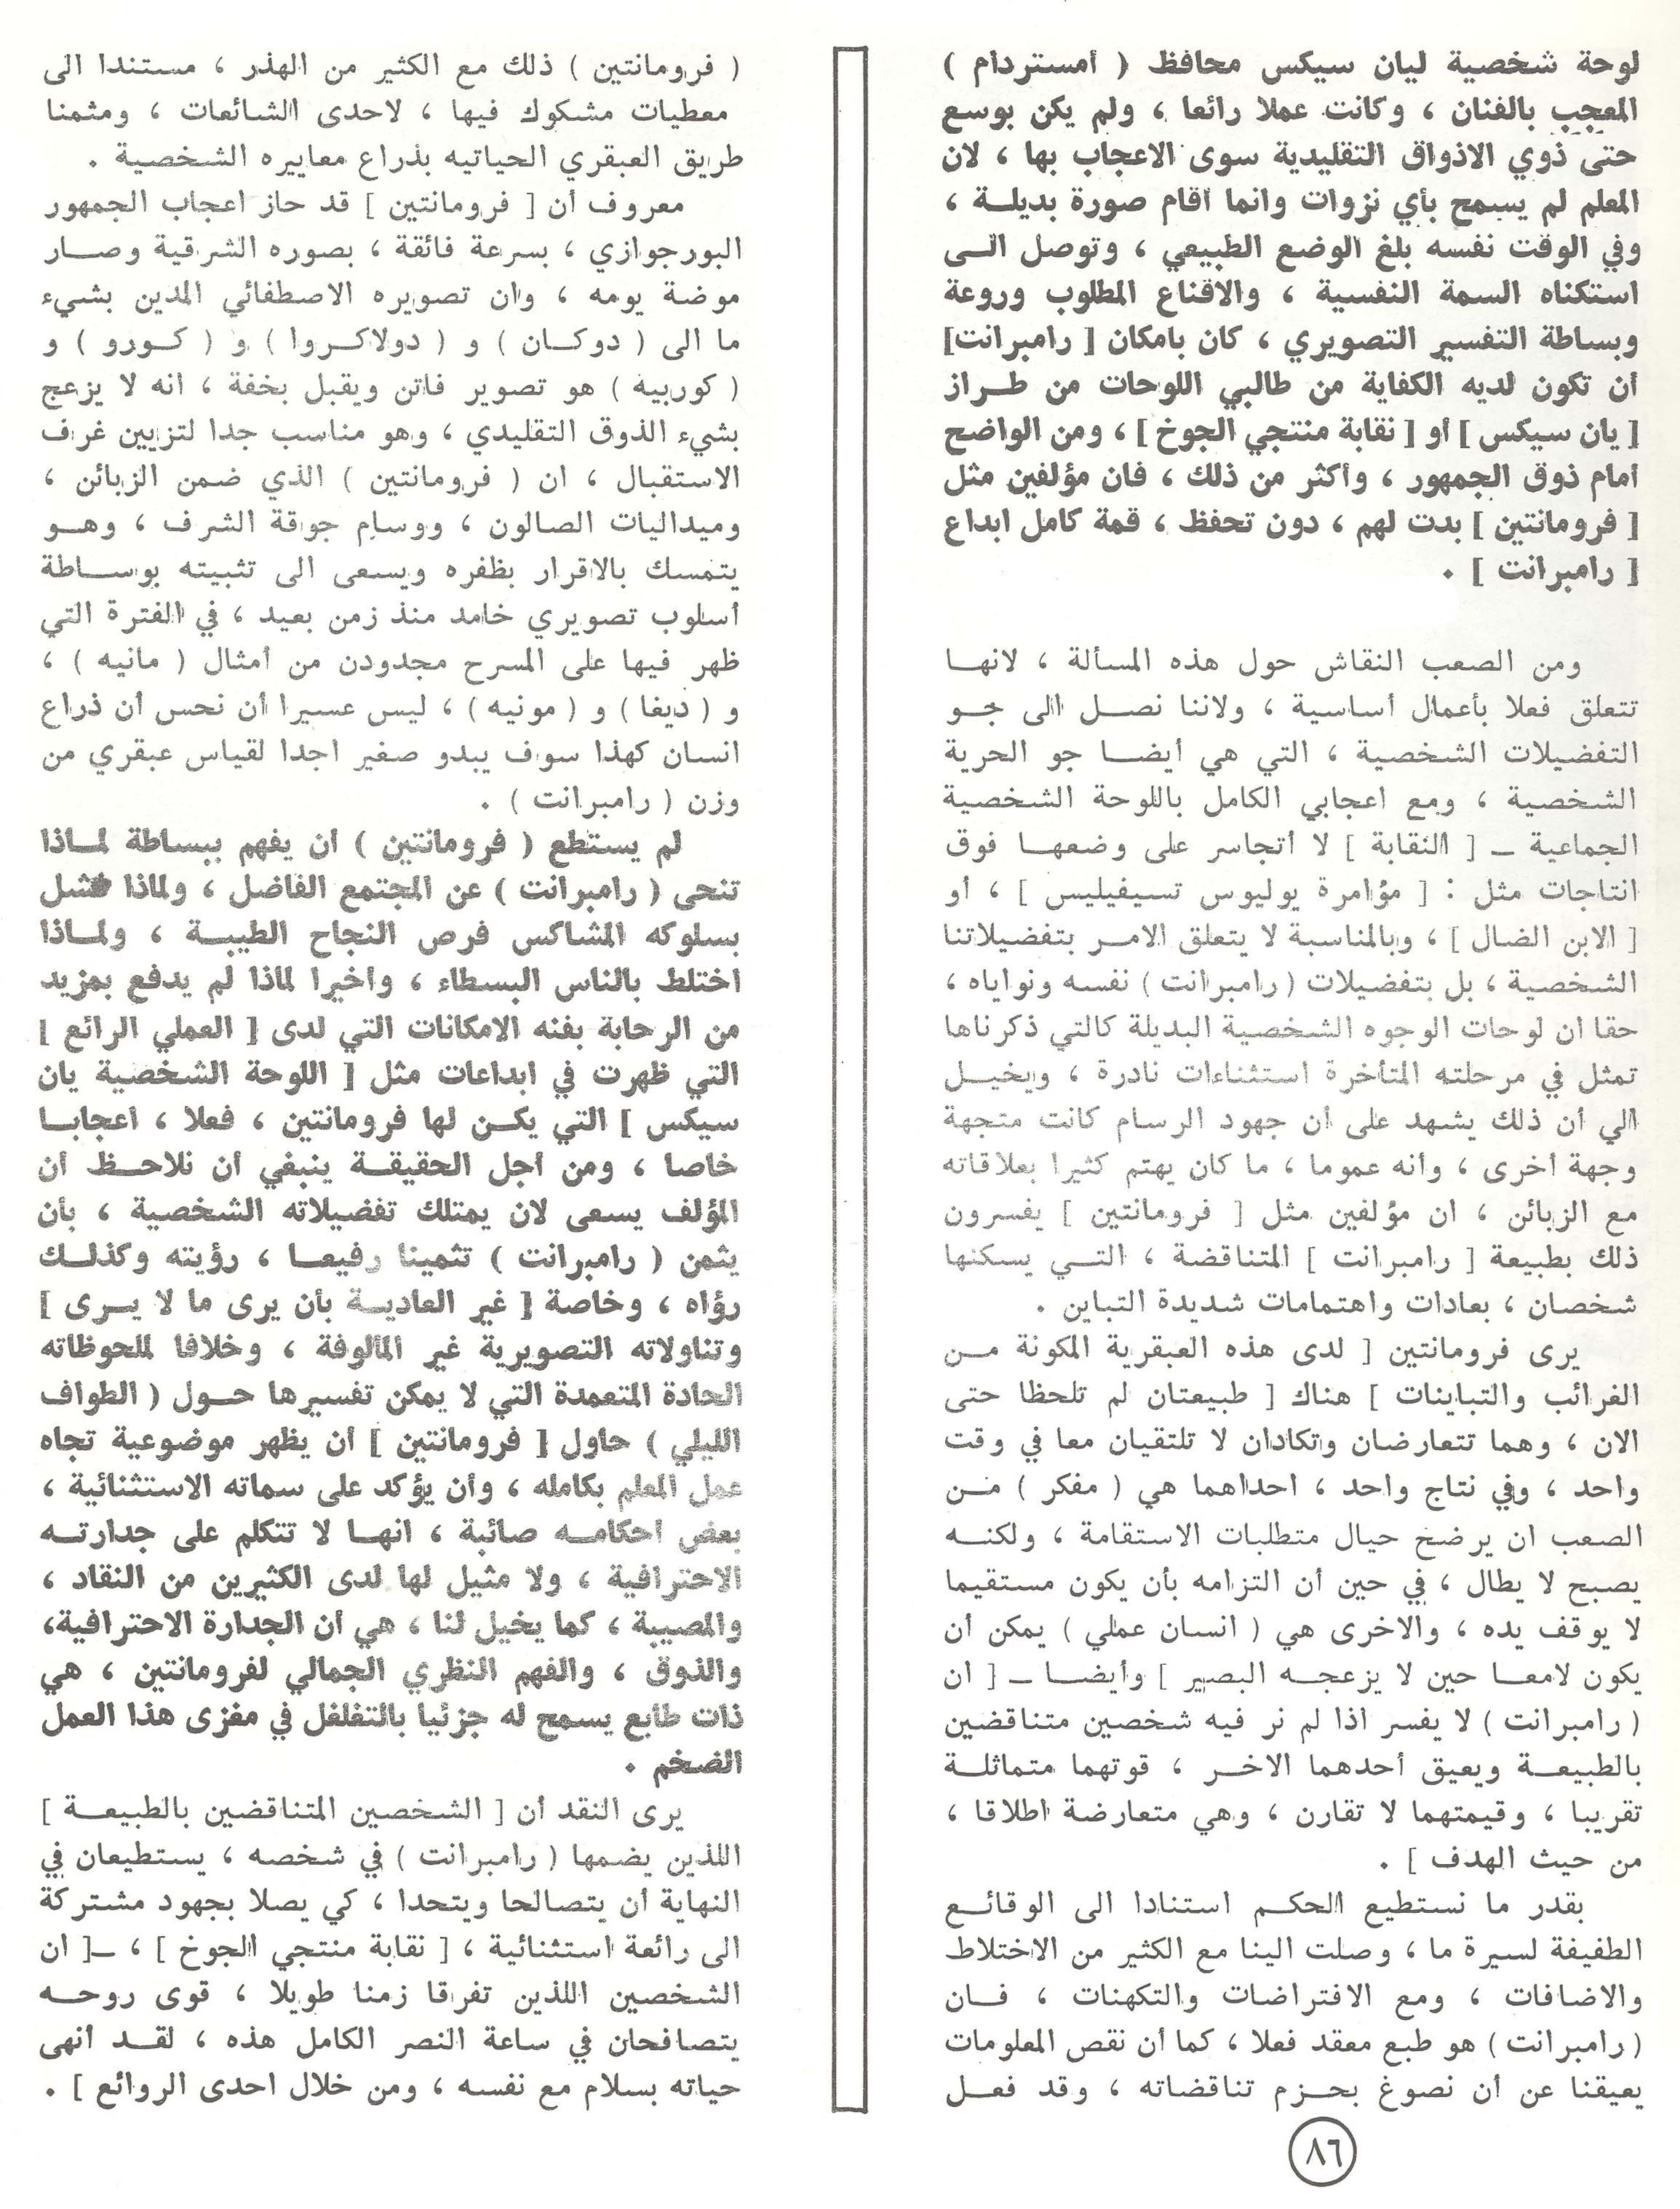 لوحة شخصية ليان سيكس محافظ ( أمستردام )
المعجب بالفنان ، وكانت عملا رائعا ، ولم يكن بوسع
حتى ذوي الاذواق التقليدية سوى الاعجاب بها ، لان
المعلم لم يسمح بأي نزوات وانما أقام صورة بديلـة ،
وفي الوقت نفسه بلغ الوضع الطبيعي ، وتوصل الـى
استكناه السمة النفسية ، والاقناع المطلوب وروعة
وبساطة التفسير التصويري ، كان بامكان [ رامبرانت]
أن تكون لديه الكفاية من طالبي اللوحات من طـراز
[ يان سيكس ] أو [ نقابة منتجي الجوخ ] ، ومن الواضح
أمام ذوق الجمهور ، وأكثر من ذلك ، فان مؤلفين مثل
[ فرومانتين ] بدت لهم ، دون تحفظ ، قمة كامل ابداع
[ رامبرانت ] .
ومن الصعب النقاش حول هذه المسألة ، لانهـا
تتعلق فعلا بأعمال أساسية ، ولاننا نصـل الى جـو
التفضيلات الشخصية ، التي هي أيضـا جو الحرية
الشخصية ، ومع اعجابي الكامل باللوحة الشخصية
الجماعية ـ [ النقابة ] لا أتجاسر على وضعهـا فوق
انتاجات مثل : [ مؤامرة يوليوس تسيفيليس ] ، أو
[ الابن الضال ] ، وبالمناسبة لا يتعلق الامـر بتفضيلاتنا
الشخصية ، بل بتفضيلات ( رامبرانت ) نفسه ونواياه ،
حقا ان لوحات الوجوه الشخصية البديلة كالتي ذكرناها
تمثل في مرحلته المتأخرة استثناءات نادرة ، ويخيـل
الي أن ذلك يشهد على أن جهود الرسام كانت متجهة
وجهة أخرى ، وأنه عموما ، ما كان يهتم كثيرا بعلاقاته
مع الزبائن ، ان مؤلفين مثل [ فرومانتين ] يفسرون
ذلك بطبيعة [ رامبرانت ] المتناقضة ، التـي يسكنها
شخصان ، بعادات واهتمامات شديدة التباين .
يرى فرومانتين [ لدى هذه العبقرية المكونة مـن
الغرائب والتباينات ] هناك [ طبيعتان لم تلحظا حتى
الان ، وهما تتعارضان وتكادان لا تلتقيان معا في وقت
واحد ، وفي نتاج واحد ، احداهما هي ( مفكر ) مـن
الصعب ان يرضخ حيال متطلبات الاستقامة ، ولكنـه
يصبح لا يطال ، في حين أن التزامه بأن يكون مستقيما
لا يوقف يده ، والاخرى هي ( انسان عملي ) يمكن أن
يكون لامعـا حين لا يزعجـه البصير ] وأيضـا ـ [ ان
( رامبرانت ) لا يفسر اذا لم نر فيه شخصين متناقضين
بالطبيعـة ويعيق أحدهما الاخـر ، قوتهما متماثلـة
تقريبا ، وقيمتهما لا تقارن ، وهي متعارضة اطلاقا ،
من حيث الهدف ] .
بقدر ما نستطيع الحكـم استنادا الى الوقائـع
الطفيفة لسيرة ما ، وصلت الينا مع الكثير من الاختلاط
والاضافات ، ومع الافتراضات والتكهنات ، فـان
( رامبرانت ) هو طبع معقد فعلا ، كما أن نقص المعلومات
يعيقنا عن أن نصوغ بحـزم تناقضاته ، وقد فعـل
( فرومانتين ) ذلك مع الكثير من الهذر ، مستندا الى
معطيات مشكوك فيها ، لاحدى الشائعات ، ومثمنا
طريق العبقري الحياتيه بذراع معاييره الشخصية .
معروف أن [ فرومانتين ] قد حاز اعجاب الجمهور
البورجوازي ، بسرعة فائقة ، بصوره الشرقية وصـار
موضة يومه ، وان تصويره الاصطفائي المدين بشيء
ما الى ( دوكـان ) و ( دولاكـروا ) و ( كـورو ) و
( كوربيه ) هو تصوير فاتن ويقبل بخفة ، انه لا يزعج
بشيء الذوق التقليدي ، وهو مناسب جدا لتزيين غرف
الاستقبال ، ان ( فرومانتين ) الذي ضمن الزبائن ،
وميداليات الصالون ، ووسام جوقة الشرف ، وهـو
يتمسك بالاقرار بظفره ويسعى الى تثبيته بوسـاطة
أسلوب تصويري خامد منذ زمن بعيد ، في الفترة التي
ظهر فيها على المسرح مجدودن من أمثال ( مانيه ) ،
و ( ديغا ) و ( مونيه ) ، ليس عسيرا أن نحس أن ذراع
انسان كهذا سوف يبدو صغير اجدا لقياس عبقري من
وزن ( رامبرانت ) .
لم يستطع ( فرومانتين ) أن يفهم ببساطة لماذا
تنحى ( رامبرانت ) عن المجتمع الفاضل ، ولماذا فشل
بسلوكه المشاكس فرص النجاح الطيبـة ، ولماذا
اختلط بالناس البسطاء ، وأخيرا لماذا لم يدفع بمزيد
من الرحابة بفنه الامكانات التي لدى [ العملي الرائع ]
التي ظهرت في ابداعات مثل [ اللوحة الشخصية يان
سيكس ] التي يكـن لها فرومانتين ، فعلا ، اعجابـا
خاصا ، ومن أجل الحقيقـة ينبغي أن نلاحـظ أن
المؤلف يسعى لان يمتلك تفضيلاته الشخصية ، بأن
يثمن ( رامبرانت ) تثمينا رفيعـا ، رؤيته وكذلـك
رؤاه ، وخاصة [ غير العاديـة بأن يرى ما لا يـرى ]
وتناولاته التصويرية غير المألوفة ، وخلافا للملحوظاته
الحادة المتعمدة التي لا يمكن تفسيرها حـول ( الطواف
الليلي ) حاول [ فرومانتين ] أن يظهر موضوعية تجاه
عمل المعلم بكامله ، وأن يؤكد على سماته الاستثنائية ،
بعض احكامـه صائبة ، انهـا لا تتكلم على جدارتـه
الاحترافية ، ولا مثيل لها لدى الكثيرين من النقاد ،
والمصيبة ، كما يخيل لنا ، هي أن الجدارة الاحترافية،
والذوق ، والفهم النظري الجمالي لفرومانتين ، هي
ذات طابع يسمح له جزئيا بالتغلغل في مغزى هذا العمل
الضخم .
يرى النقد أن [ الشخصين المتناقضين بالطبيعـة ]
اللذين يضمها ( رامبرانت ) في شخصه ، يستطيعان في
النهاية أن يتصالحا ويتحدا ، كي يصلا بجهود مشتركة
الى رائعة استثنائية ، [ نقابة منتجي الجوخ ] ، ـ[ ان
الشخصين اللذين تفرقا زمنا طويلا ، قوى روحـه
يتصافحان في ساعة النصر الكامل هذه ، لقـد أنهى
حياته بسلام مع نفسه ، ومن خلال احدى الروائع ] .
٨٦